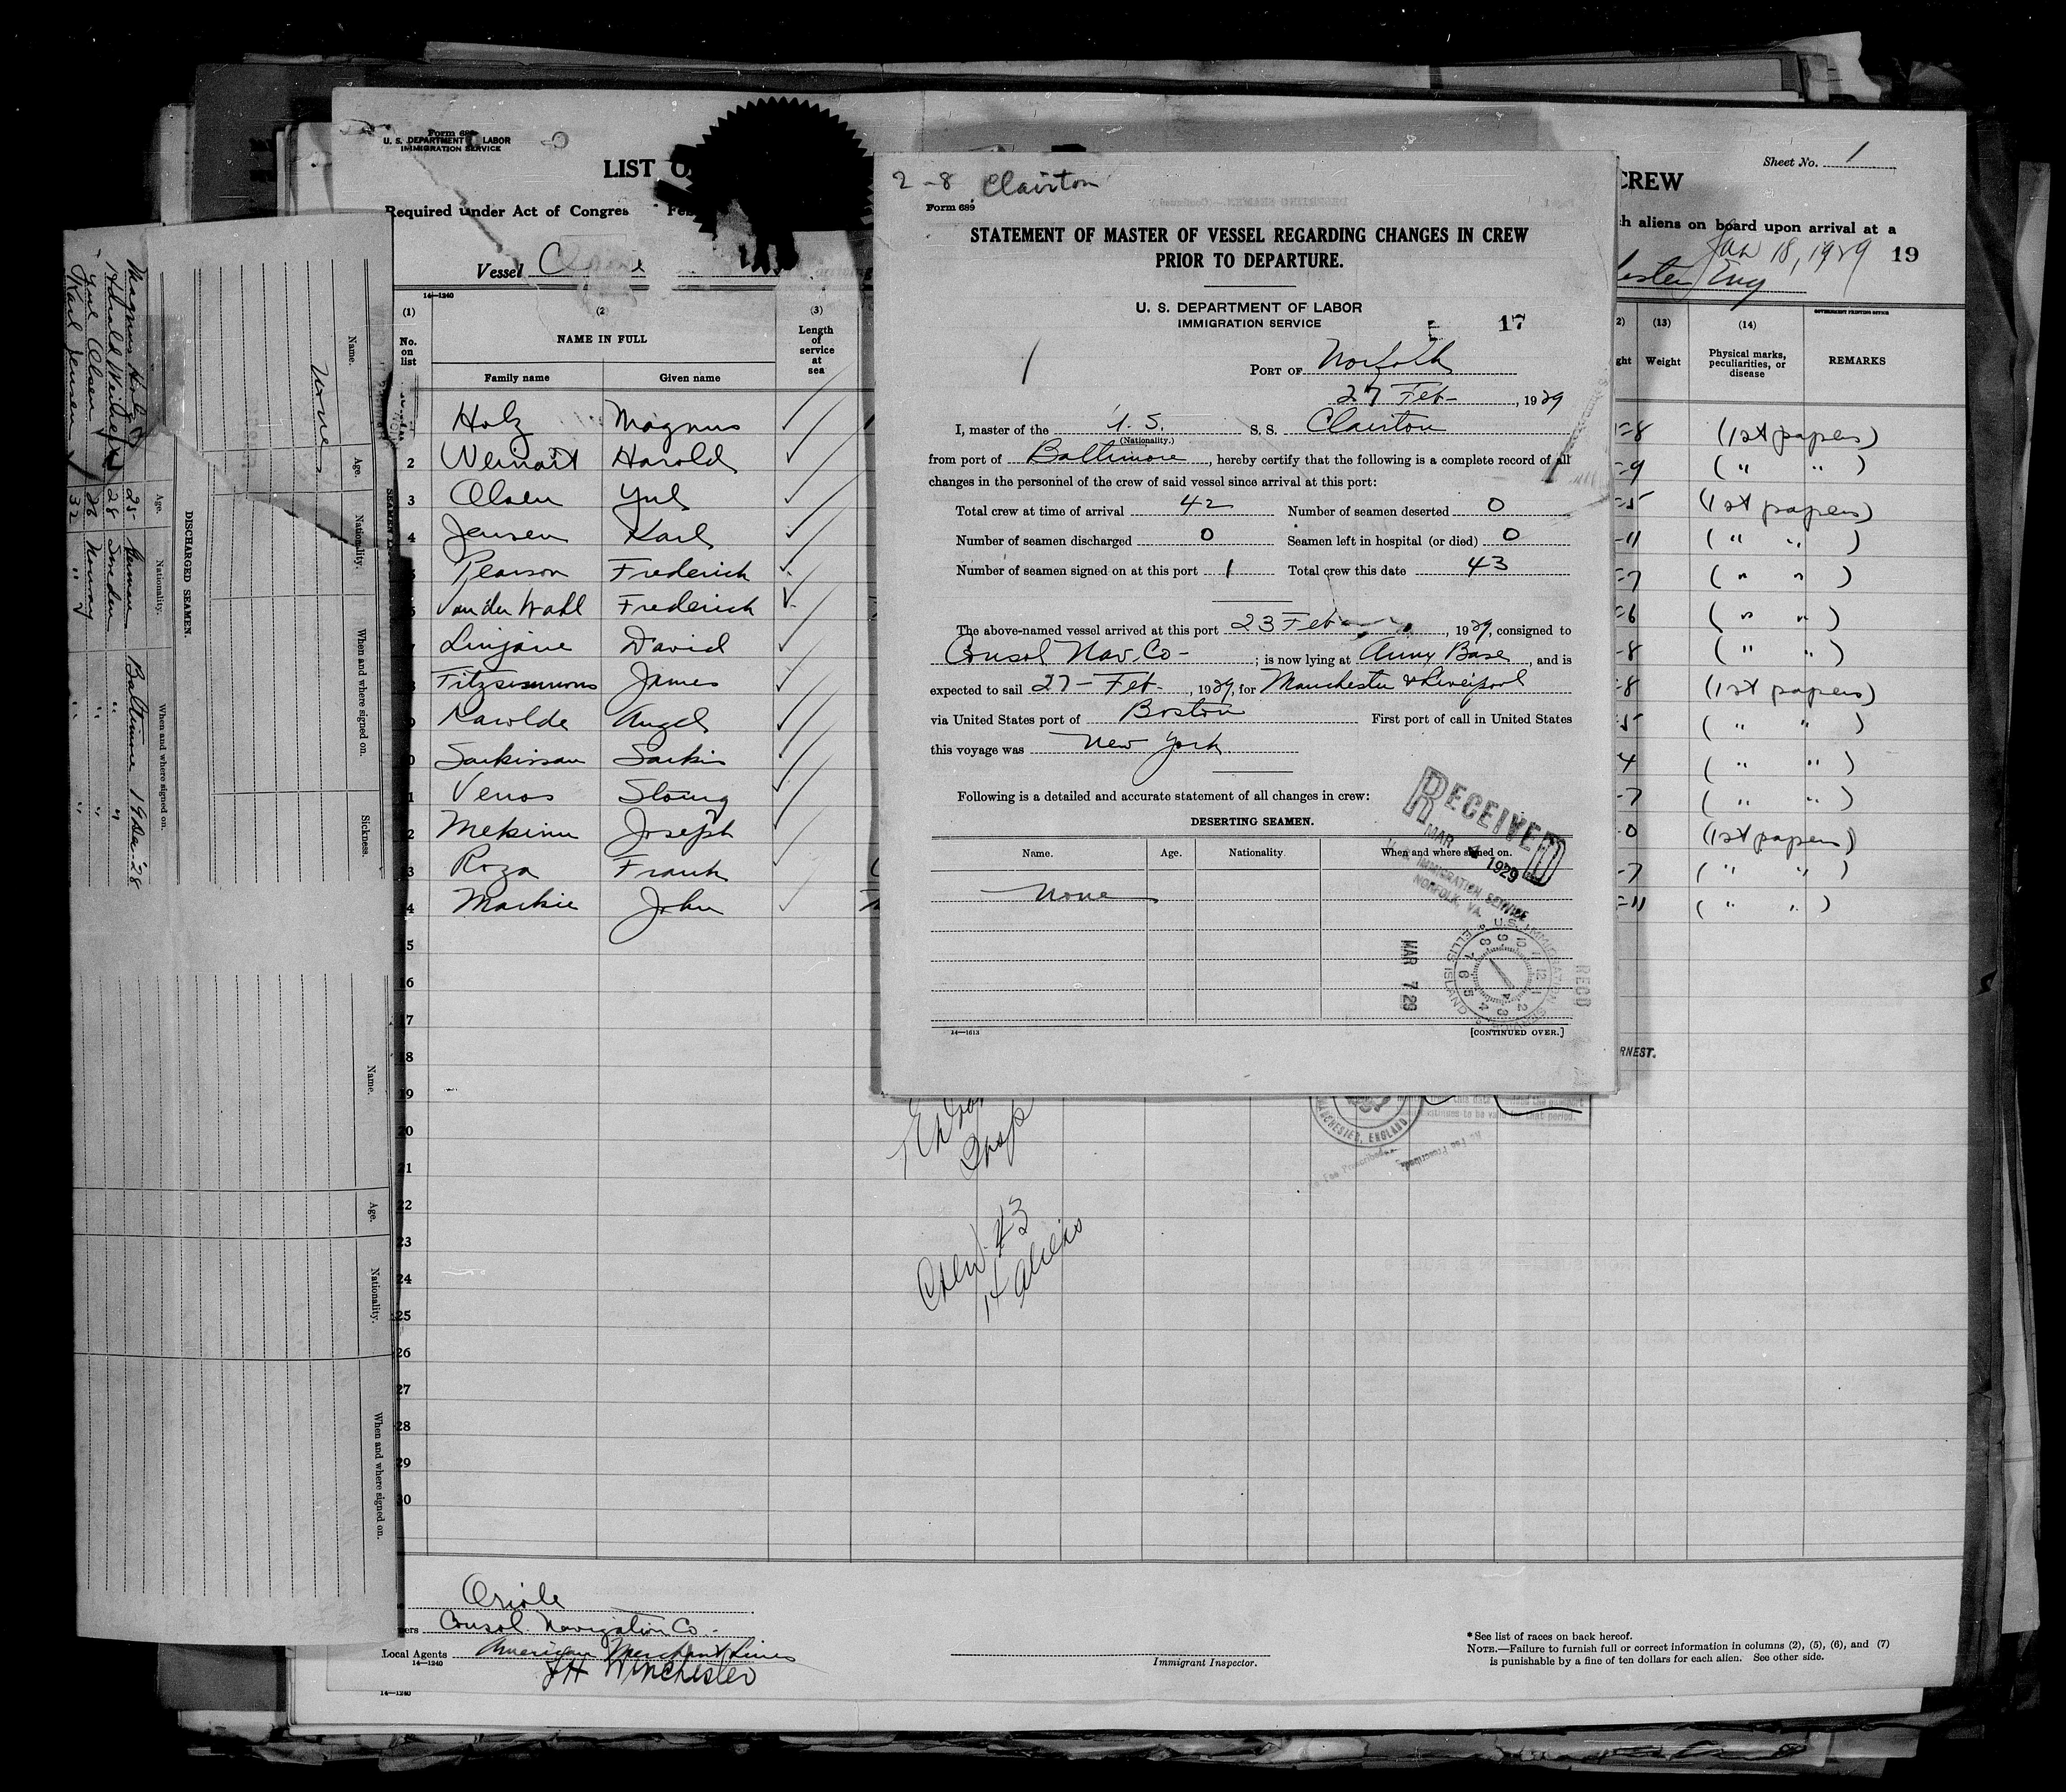 Form 689
U. S. DEPARTMENT OF LABOR
IMMIGRATION SERVICE
LIST O
CREW
Sheet No. 1
Required under Act of Congres Feb
h aliens on board upon arrival at a
Jan 18, 1929 19
Vessel
ester Eng
14—1240
(1) No. on list
(2) NAME IN FULL
Family name Given name
(3) Length of service at sea
(13) Weight
(14) Physical marks, peculiarities, or disease
GOVERNMENT PRINTING OFFICE
REMARKS
Holz Magnus (1st papers)
2 Harold (" ")
3 Olsen Yul (1st papers)
4 Jensen Karl (" ")
Pearson Frederick (" ")
Van der Wahl Frederick (" ")
Linjane David (" ")
Fitzsimmons James (1st papers)
Angel (" ")
Sarkissan Sarkis (" ")
Venos (" ")
Joseph (1st papers)
Roza Frank (" ")
Markie John (" ")
15
16
17
18
19
20
21
22
23
24
25
26
27
28
29
30
RNEST.
MANCHESTER, ENGLAND
Crew 43
14 aliens
Oriole
ers Consol. Navigation Co.
Local Agents American Merchant Lines
14—1240
JH Winchester
Immigrant Inspector.
*See list of races on back hereof.
NOTE.—Failure to furnish full or correct information in columns (2), (5), (6), and (7)
is punishable by a fine of ten dollars for each alien. See other side.
14—1240
2-8 Clairton
Form 689
STATEMENT OF MASTER OF VESSEL REGARDING CHANGES IN CREW
PRIOR TO DEPARTURE.
U. S. DEPARTMENT OF LABOR
IMMIGRATION SERVICE
17
1
PORT OF Norfolk
27 Feb-, 1929
I, master of the U.S. S. S. Clairton
(Nationality.)
from port of Baltimore, hereby certify that the following is a complete record of all
changes in the personnel of the crew of said vessel since arrival at this port:
Total crew at time of arrival 42 Number of seamen deserted 0
Number of seamen discharged 0 Seamen left in hospital (or died) 0
Number of seamen signed on at this port 1 Total crew this date 43
The above-named vessel arrived at this port 23 Feb, 1929, consigned to
Consol Nav. Co-; is now lying at Army Base, and is
expected to sail 27-Feb-, 1929, for Manchester & Liverpool
via United States port of Boston First port of call in United States
this voyage was New York
Following is a detailed and accurate statement of all changes in crew:
DESERTING SEAMEN.
Name. Age. Nationality When and where signed on.
None
RECEIVED
MAR 4 1929
U.S. IMMIGRATION SERVICE
NORFOLK, VA.
MAR 7 29
U.S. IMMIGRATION SERVICE ELLIS ISLAND
RECD
14—1613
[CONTINUED OVER.]
Name. Age. Nationality. When and where signed on. Sickness.
None
DISCHARGED SEAMEN.
Name. Age. Nationality. When and where signed on.
Magnus Holz 25 German Baltimore 19 Dec. '28
28 Sweden " "
Yul Olsen 26 Norway " "
Karl Jensen 32 " " "
Name. Age. Nationality. When and where signed on.